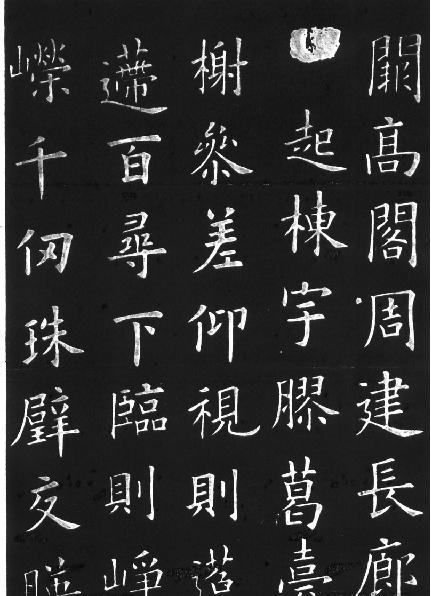 闕高閣周建長廊
起棟宇膠葛臺
榭參差仰視則
遰百尋下臨則崢
嶸千仞珠璧交暎